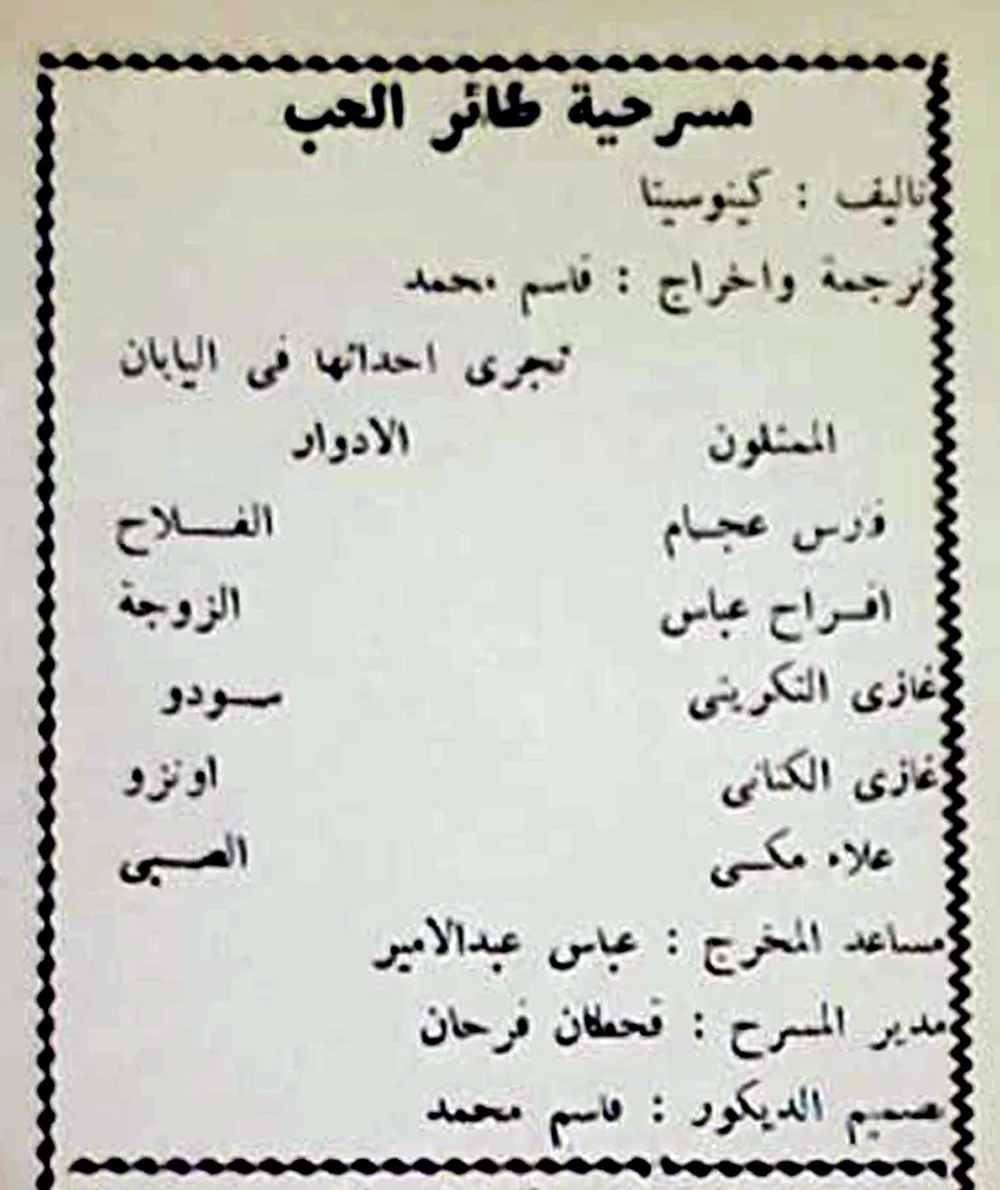 مسرحية طائر الحب
تاليف : كينوسيتا
ترجمة واخراج : قاسم محمد
تجرى احداثها فى اليابان
الممثلون الادوار
فارس عجـام الفـــلاح
افـراح عباس الزوجة
غازى التكريتى ســودو
غازى الكنانى اونزو
علاء مكـى الصـبى
مساعد المخرج : عباس عبدالامير
مدير المسرح : قحطان فرحان
تصميم الديكور : قاسم محمد